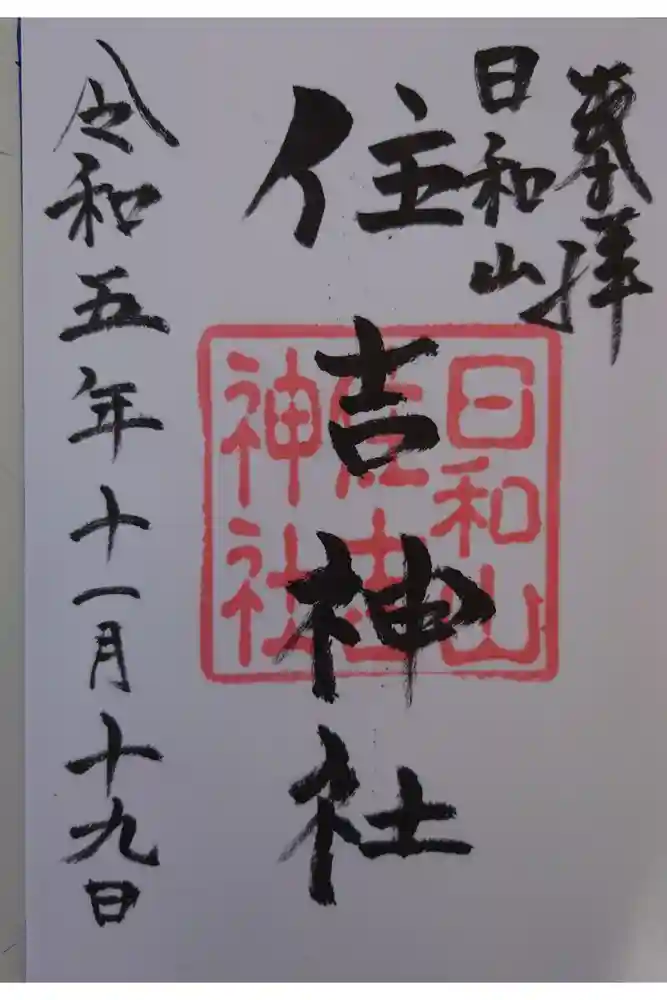 奉拝
日和山
住吉神社
日和山
住吉
神社
令和五年十一月十九日